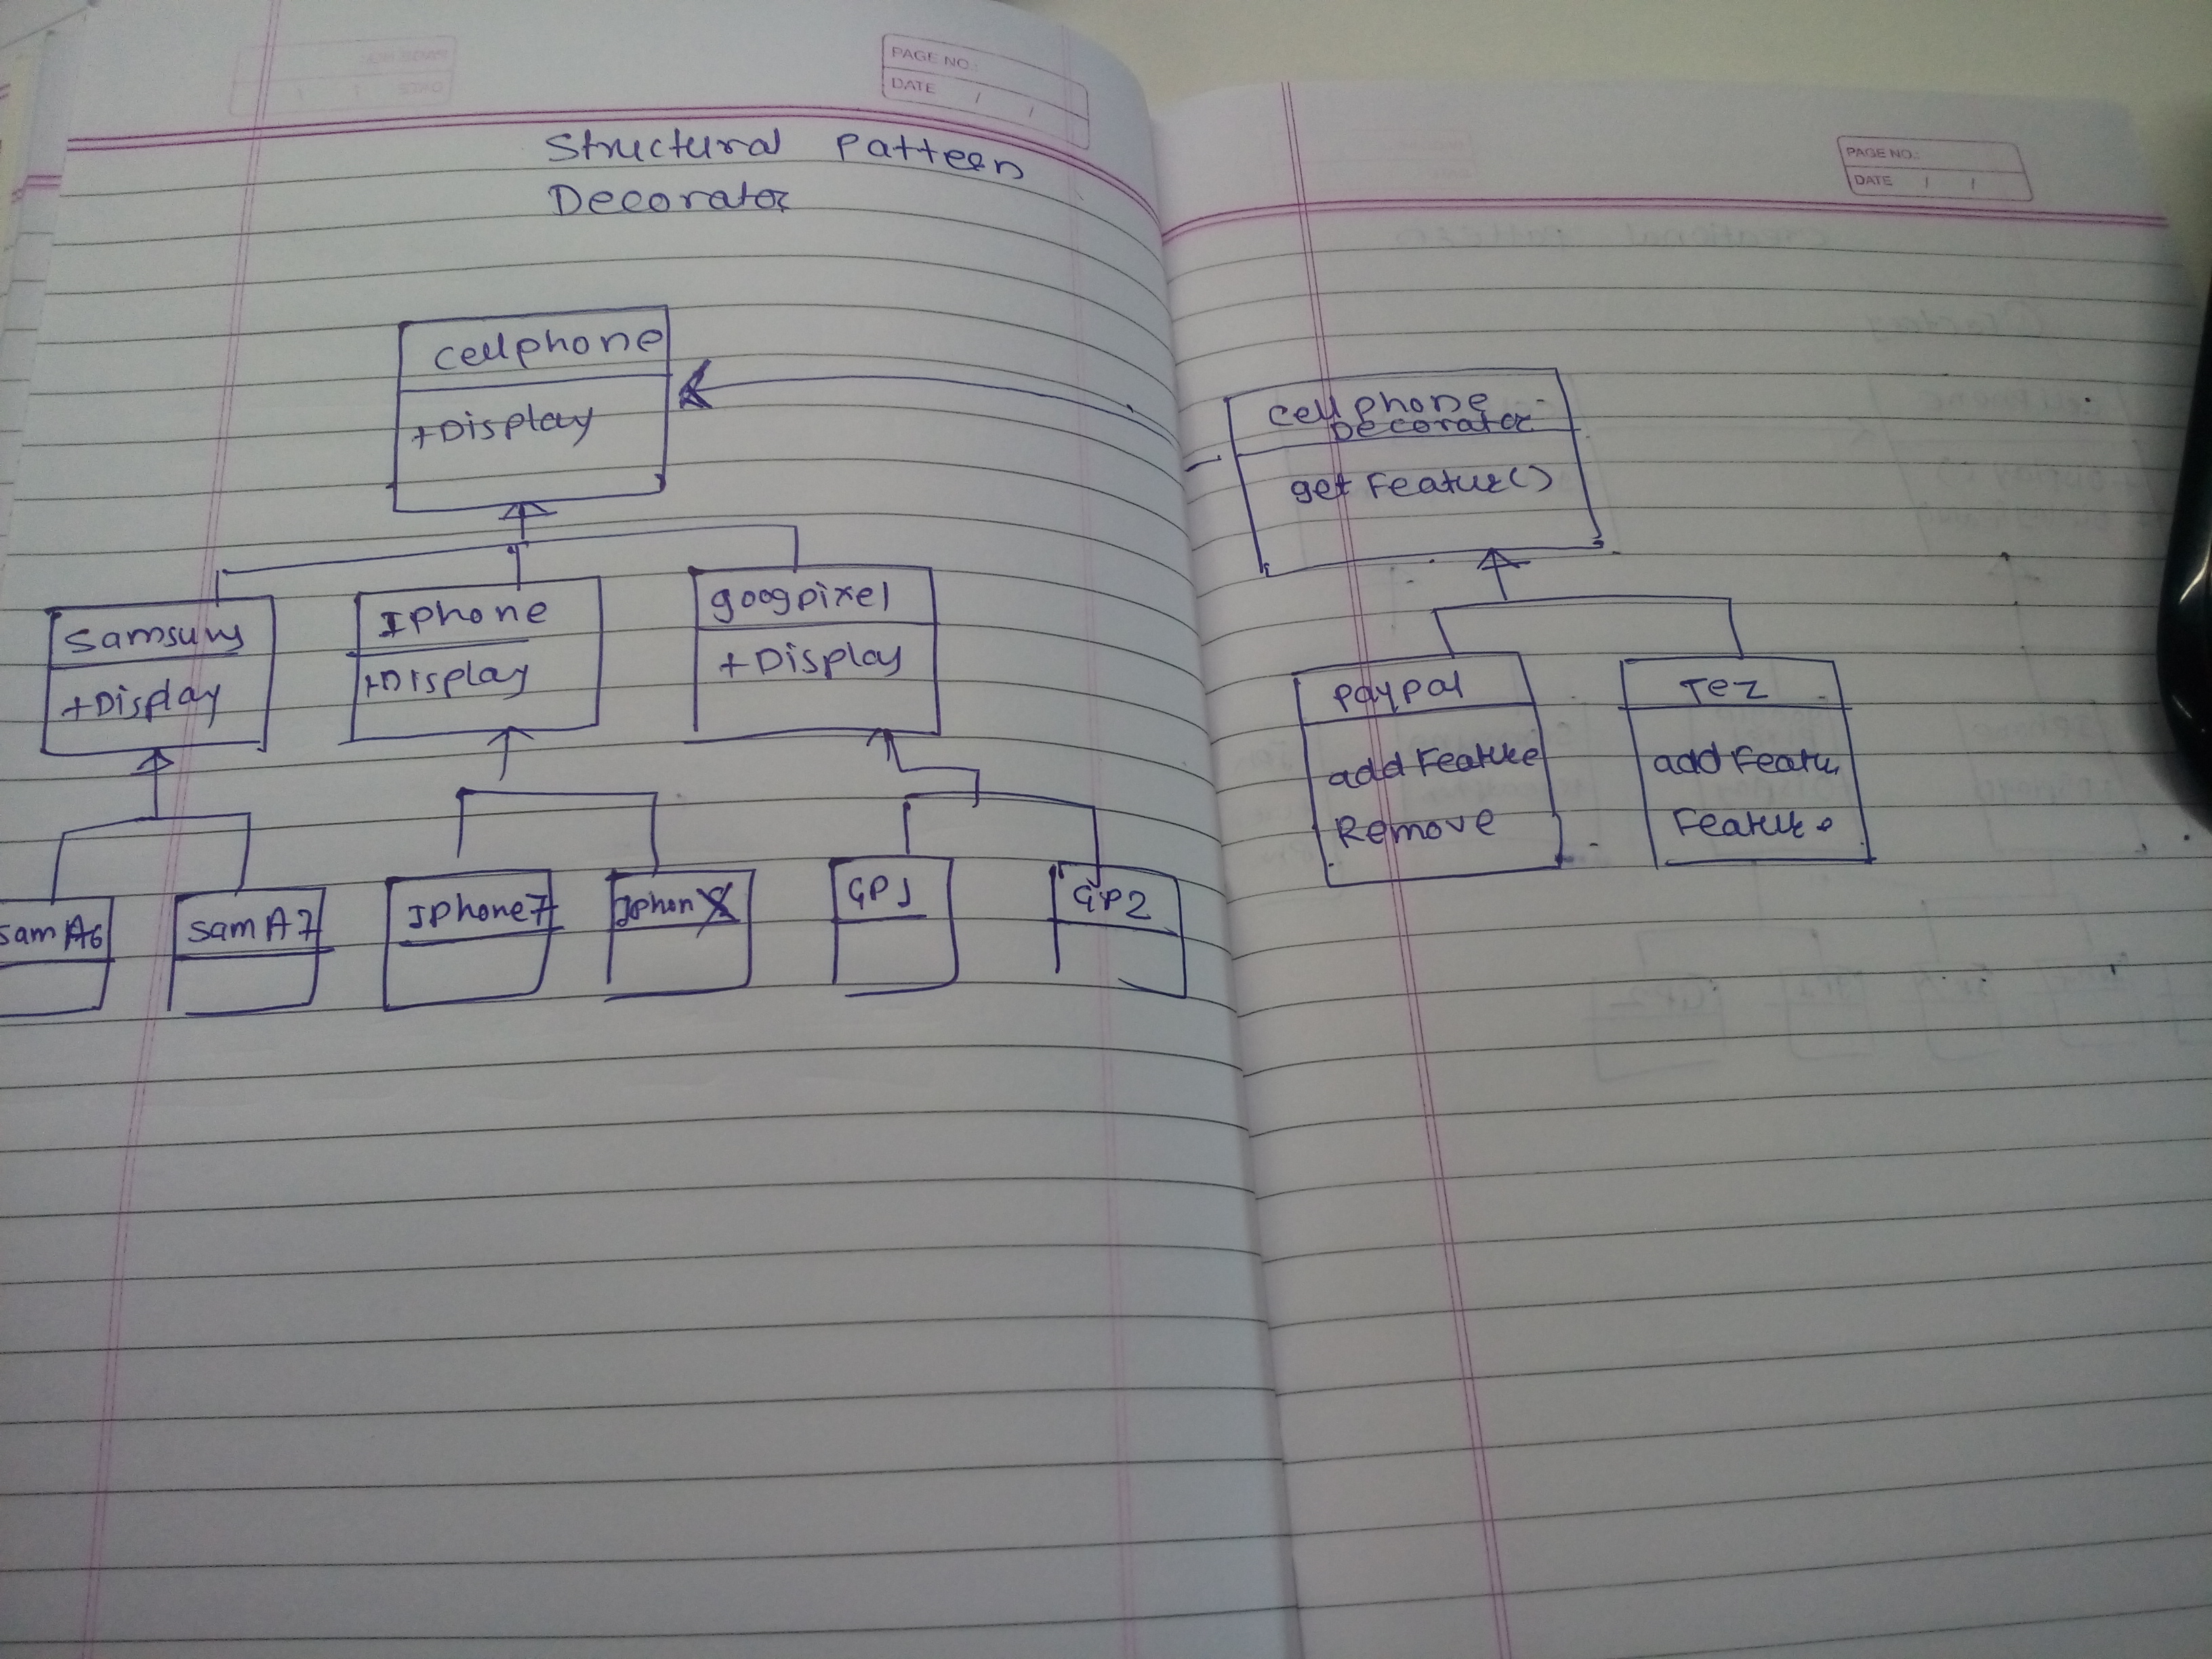 PAGE NO.:
DATE / /
Structural Pattern
Decorator
cellphone
+Display
Samsung
+Display
Iphone
+Display
googpixel
+Display
sam A6
sam A7
Iphone7
Iphon X
GP1
GP2
PAGE NO.:
DATE / /
cellphone
Decorator
get Feature()
paypal
add Feature
Remove
Tez
add Featu
Feature